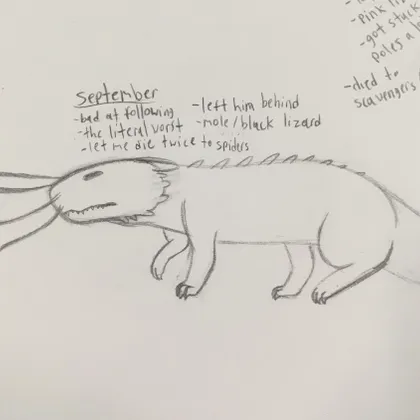 September
-bad at following
-the literal worst
-let me die twice to spiders
-left him behind
-mole/black lizard
-pink
-got stuck
poles a
-died to
scavengers